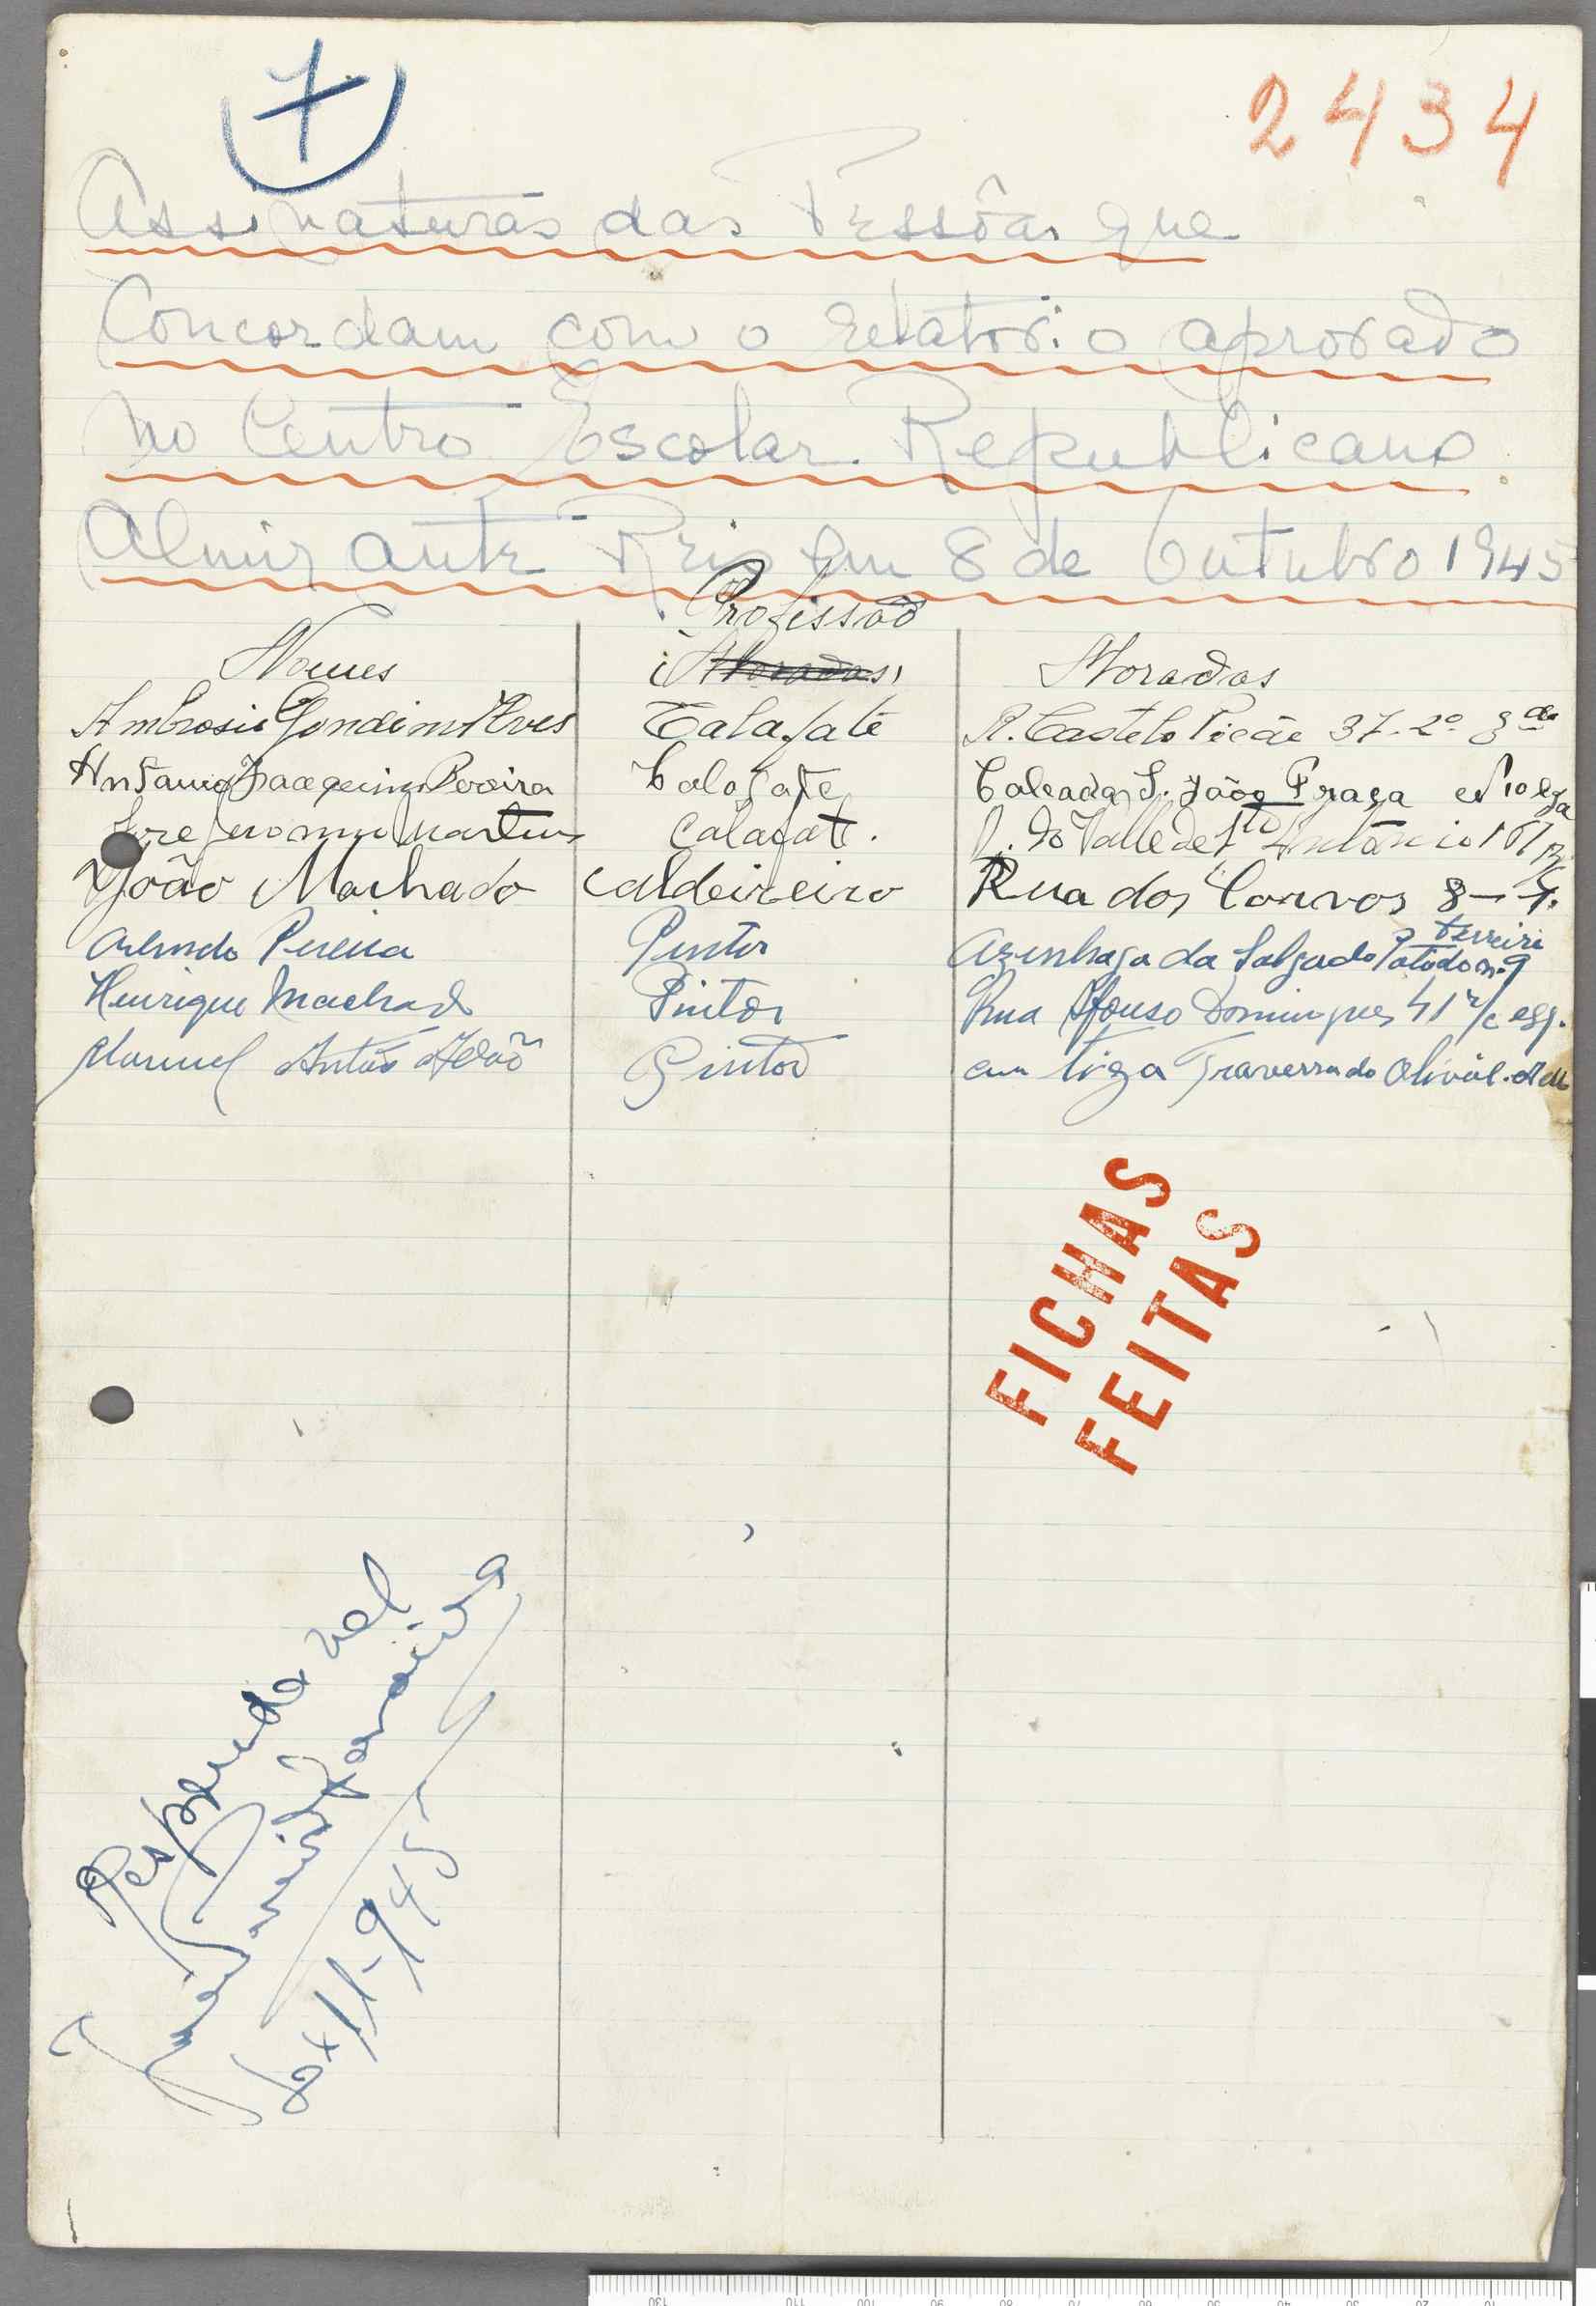 7
2434
Assinaturas das Pessôas que
Concordam com o relatorio aprovado
no Centro Escolar Republicano
Almirante Reis em 8 de Outubro 1945
Profissão
Nomes Moradas Moradas
Ambrosio Gondim Alves Calafate R. Castelo Picão 37-2º
Antonio Joaquim Pereira Calofate Calçada S. João Praça
Jose Jeronimo Martins Calafate. R. do Valle de Stº António
João Machado Caldeireiro Rua dos Corvos 8-
Arlindo Pereira Pintor Azinhaga da Salgado n. 9
Henrique Machado Pintor Rua Afonso Domingues 41 r/c esq.
Manuel Antão Pintor Travessa do Olival
FICHAS
FEITAS
11-945